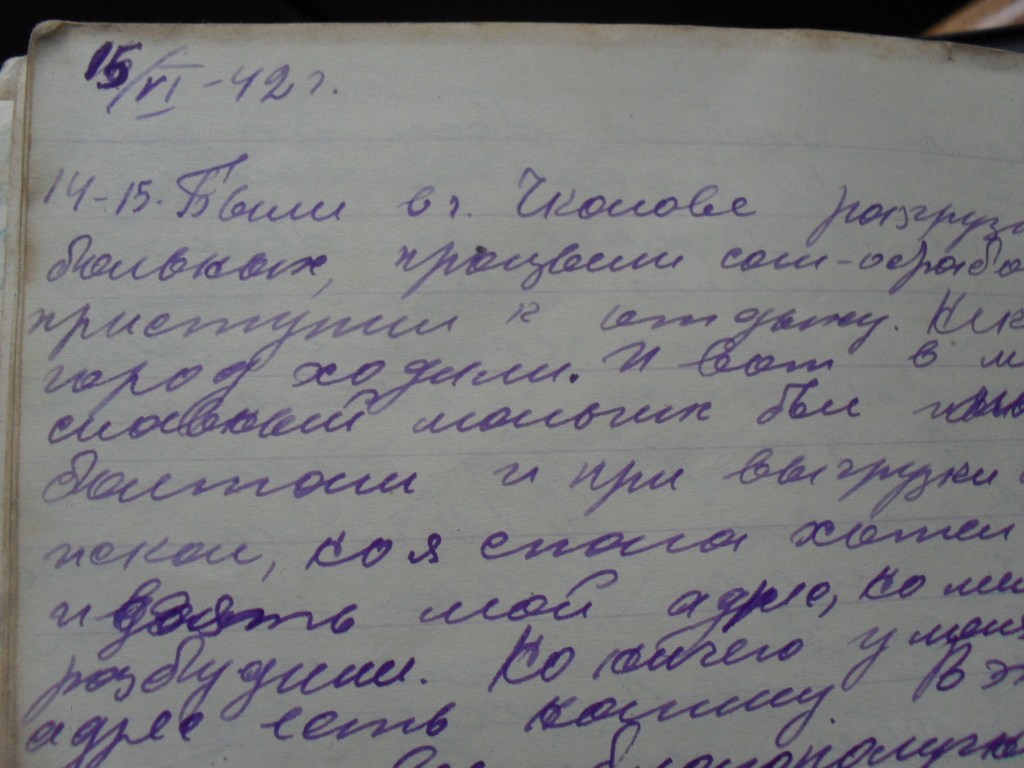 15/VI-42 г.
14-15. Были в г. Чкалове разгруз
больных, прошли сан-обрабо
приступили к отдыху.
город ходили. И вот в м
славный мальчик был
болтали и при выгрузки
искал, но я спала хотел
и взять мой адрес, но ме
разбудили. Но ничего у меня
адрес есть